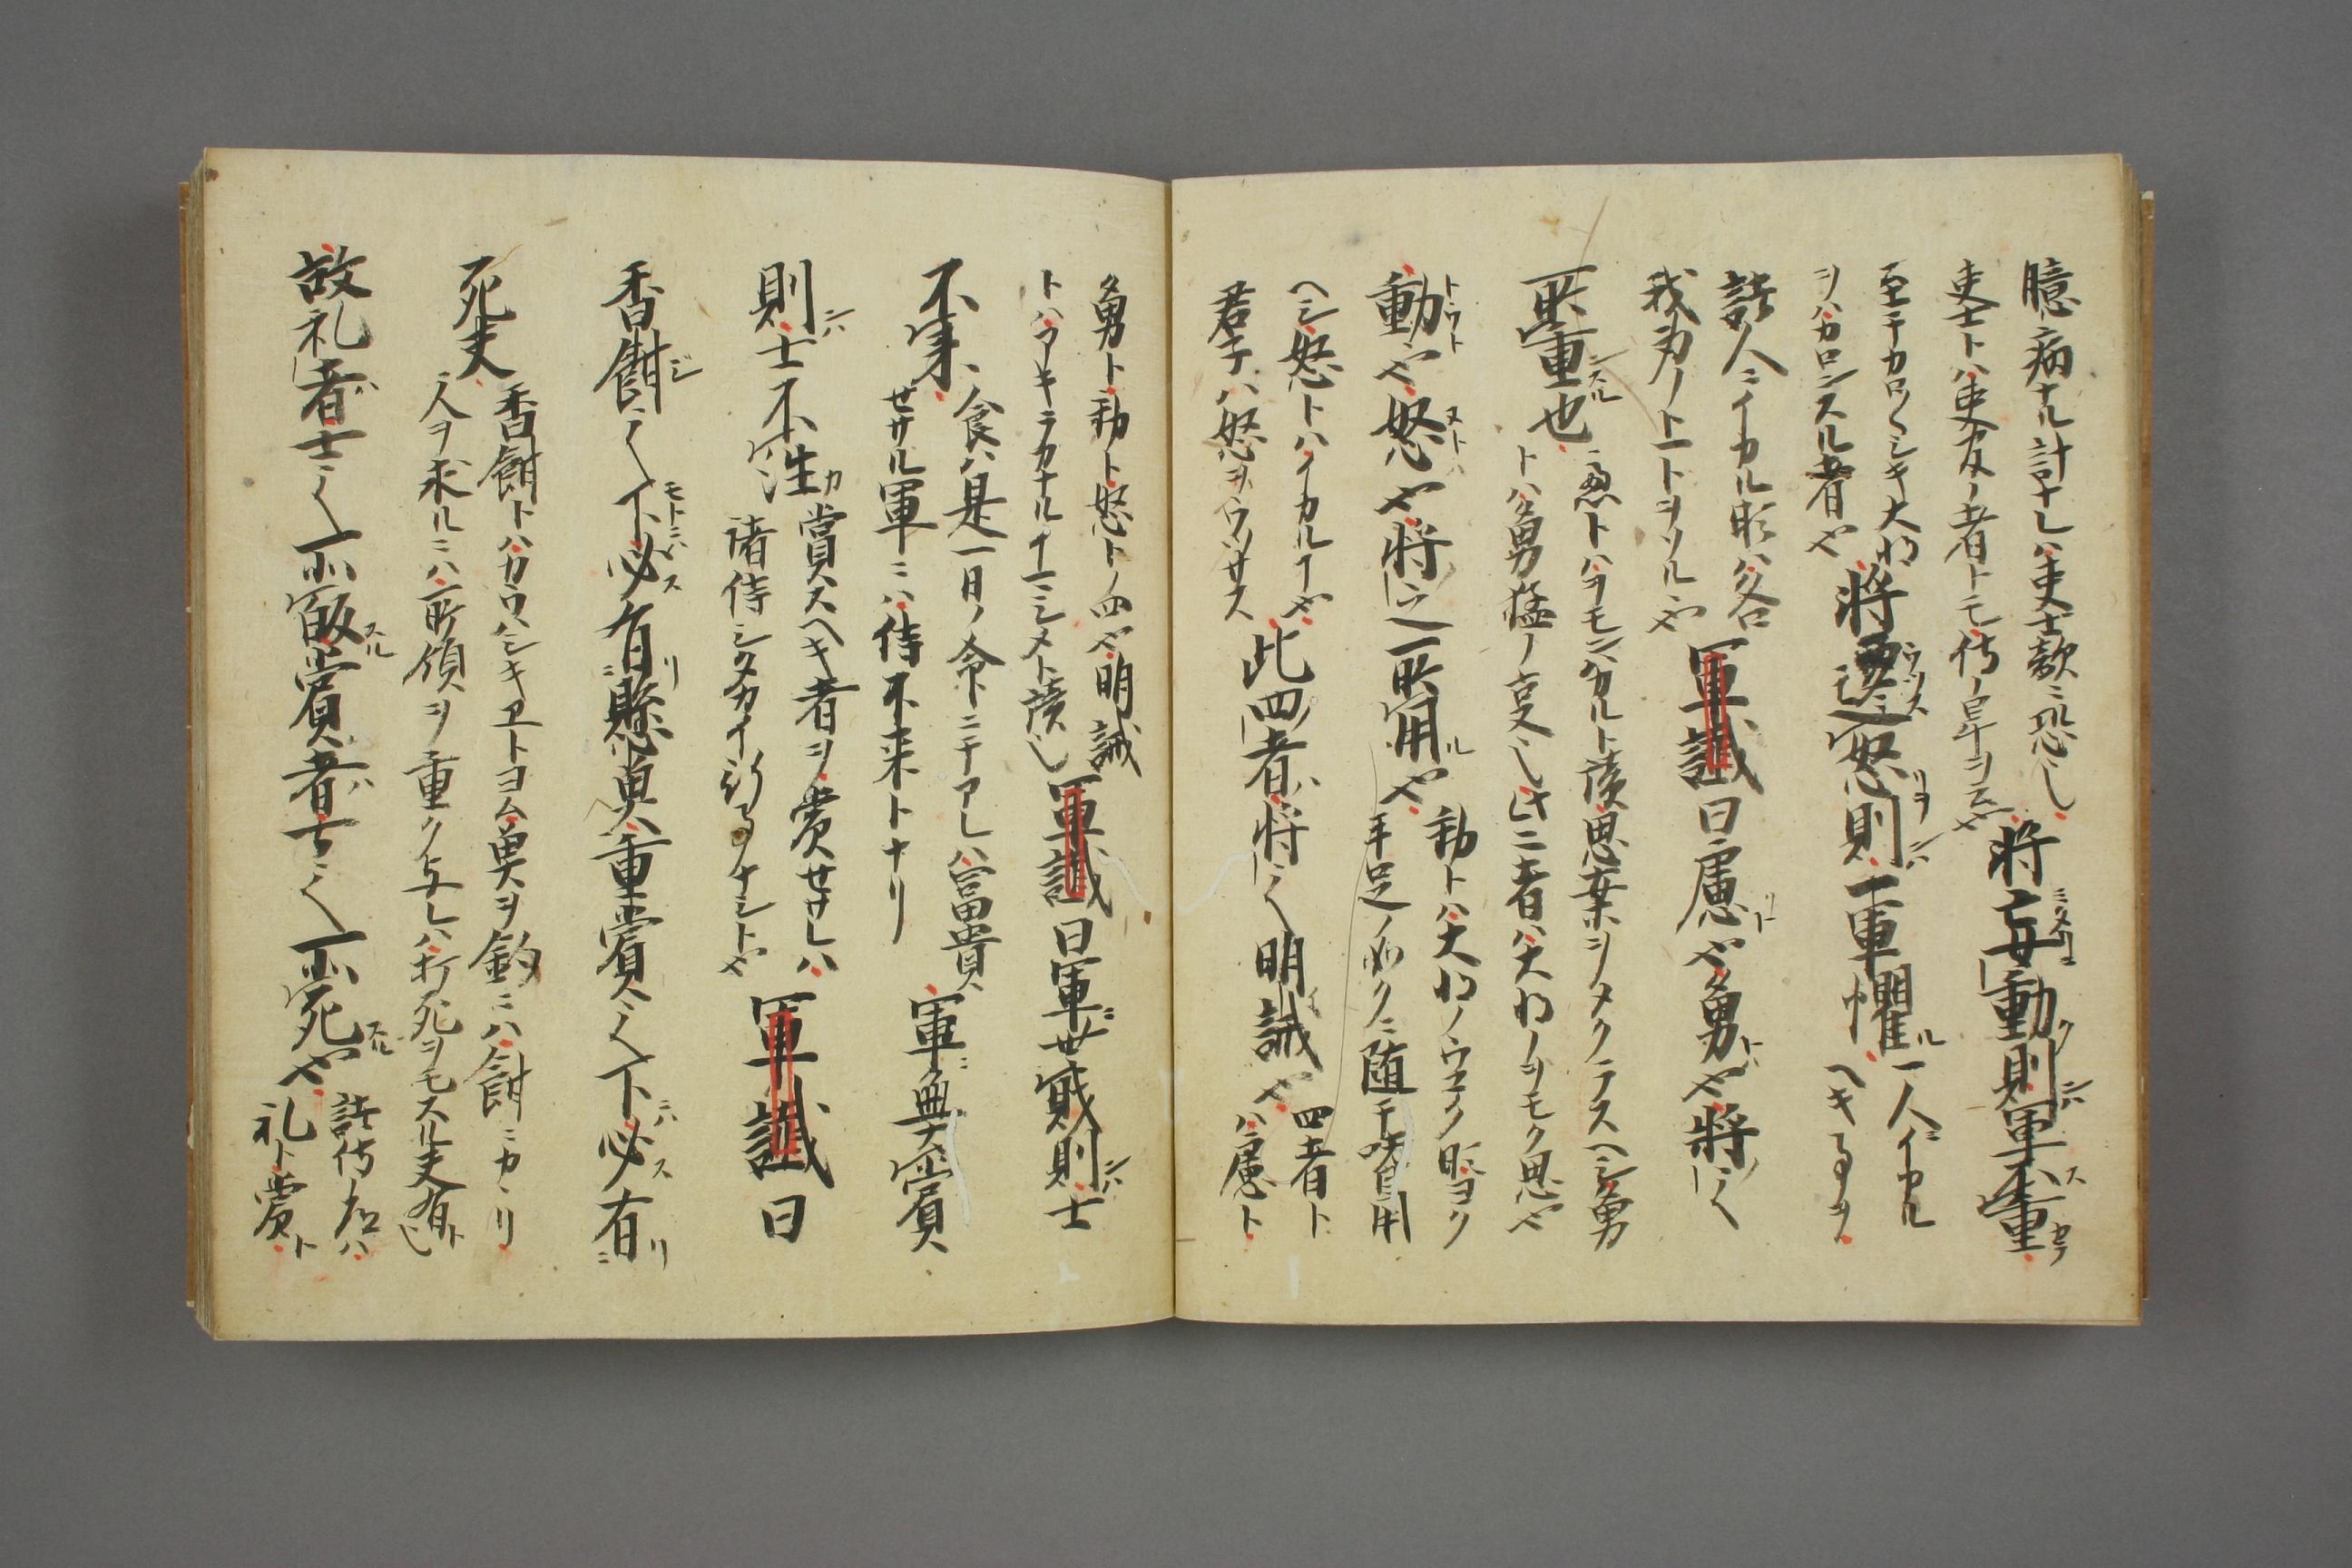 臆病ナル計ナレハ吏士歎ニ恐レ
吏士トハ吏官ノ者トモ侍ノ皐ヲ云也
将妄動則軍不重
至テカロ〱シキ大将
ヲハカロンスル者也
将迁怒則一軍懼
一人ニイカル
ヘキ事ヲ
諸人ニイカル時ハ各
我身ノ上トヲソルル也
軍讖曰慮也勇也将之
所重也
慮トハヲモンハカルト讀思案ヲメクラスヘシ勇
トハ勇猛ノ㕝也此二者ハ大将ノヲモク思也
動也怒也将之所用也
動トハ大将ノウコク時ヨク
手足ノ如クニ随テ皆用
ヘシ怒トハイカル也
君子ハ怒ヲウツサス
此四者将之明誡也
四者ト
ハ慮ト
勇ト動ト怒トノ四也明誡
トハアキラカナルイマシメト讀也
軍讖曰軍無財則士
不来
食ハ是一日ノ命ト云テアレハ富貴
せサル軍ニハ侍不来トナリ
軍無賞
則士不往
賞スヘキ者ヲ賞せサレハ
諸侍シタカイ行事ナシト也
軍讖曰
香餌之下必有懸魚重賞之下必有
死夫
香餌トハカウハシキヱトヨム魚ヲ釣ニハ餌ニカカリ
人ヲ求ルニハ所領ヲ重ク与レハ打死ヲモスル夫有ト也
故礼者士之所皈賞者士之所死也
諸侍ナトハ
礼ト賞ト